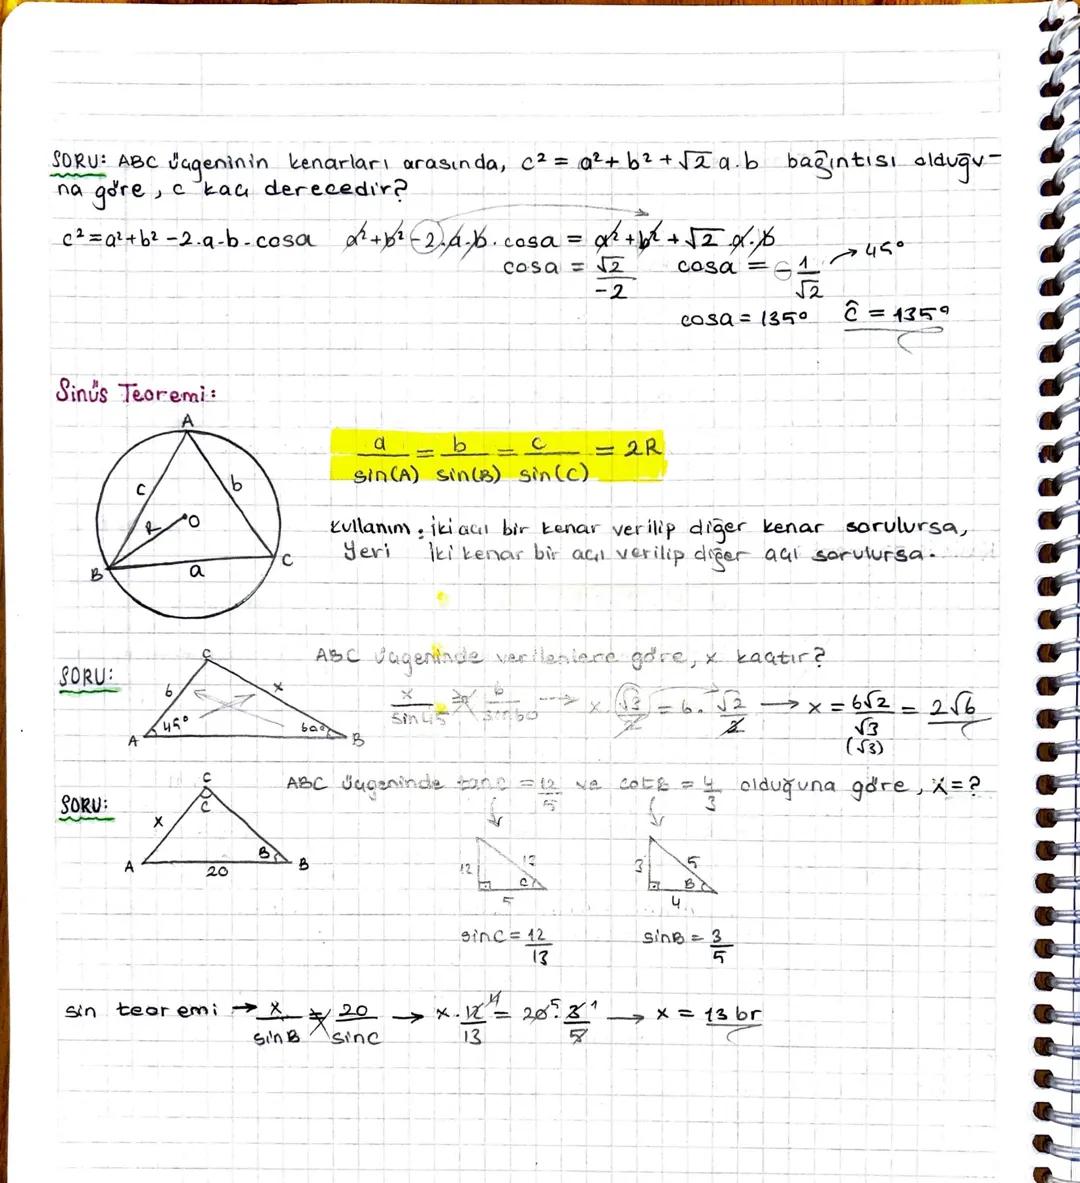 SORU: ABC üçgeninin kenarları arasında, c² = a² + b² + √2 a.b bağıntısı olduğu-
na göre, c kaç derecedir?
c² = a² + b² - 2.a.b.cosa a² + b² - 2.a.b.cosa = a² + b² + √2 a.b
cosa = √2/-2 cosa = -1/√2 → 45°
cosa = 135° ĉ = 135°
Sinüs Teoremi:
A
c b
R O
B a C
a/sin(A) = b/sin(B) = c/sin(C) = 2R
Kullanım : iki açı bir kenar verilip diğer kenar sorulursa,
Yeri iki kenar bir açı verilip diğer açı sorulursa.
SORU: ABC üçgeninde verilenlere göre, x kaçtır?
C
6 x
A 45° 60° B
x/sin45 = 6/sin60 → x.√3/2 = 6.√2/2 → x = 6√2/√3 = 2√6
(√3)
SORU: ABC üçgeninde tanc = 12/5 ve cotB = 4/3 olduğuna göre, x=?
C
C
x
A B B
20
12 13 C 5
3 5 B 4
sinC = 12/13 sinB = 3/5
sin teoremi → x/sinB = 20/sinC → x.12/13 4 = 20 5.3/5 1 → x = 13 br